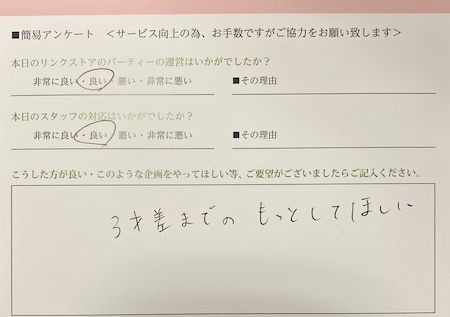 ■簡易アンケート ＜サービス向上の為、お手数ですがご協力をお願い致します＞
本日のリンクストアのパーティーの運営はいかがでしたか？
非常に良い・良い・悪い・非常に悪い ■その理由
本日のスタッフの対応はいかがでしたか？
非常に良い・良い・悪い・非常に悪い ■その理由
こうした方が良い・このような企画をやってほしい等、ご要望がございましたらご記入ください。
3才差までの もっとしてほしい